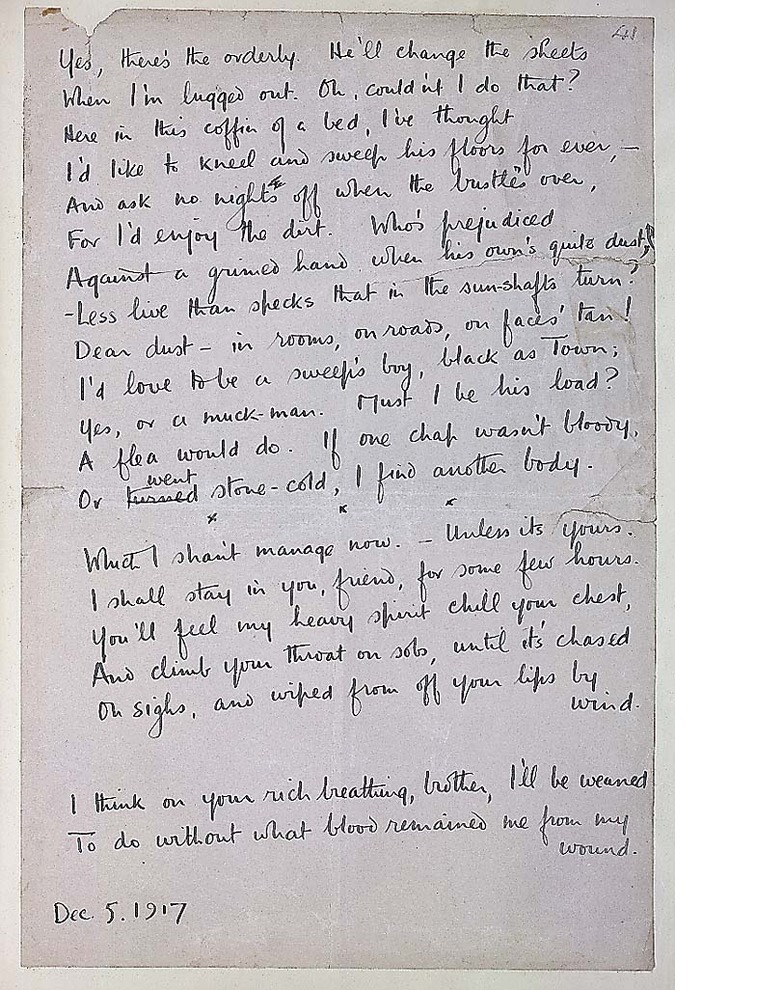 41
Yes, there's the orderly. He'll change the sheets
When I'm lugged out. Oh, couldn't I do that?
Here in this coffin of a bed, I've thought
I'd like to kneel and sweep his floors for ever, –
And ask no nights off when the bustle's over,
For I'd enjoy the dirt. Who's prejudiced
Against a grimed hand when his own's quite dust,
-Less live than specks that in the sun-shafts turn?
Dear dust – in rooms, on roads, on faces' tan!
I'd love to be a sweep's boy, black as Town;
Yes, or a muck-man. Must I be his load?
A flea would do. If one chap wasn't bloody,
went
Or turned stone-cold, I find another body.
x x x
Which I shan't manage now. – Unless it's yours.
I shall stay in you, friend, for some few hours.
You'll feel my heavy spirit chill your chest,
And climb your throat on sobs, until it's chased
On sighs, and wiped from off your lips by
wind.
I think on your rich breathing, brother, I'll be weaned
To do without what blood remained me from my
wound.
Dec. 5. 1917